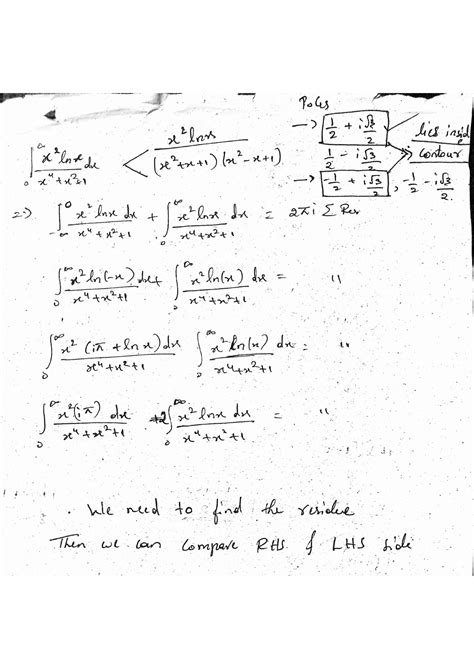 Poles
∫₀^∞ x² lnx dx / x⁴+x²+1 < x² lnx / (x²+x+1)(x²-x+1)
→ 1/2 + i√3/2 lies inside contour
1/2 - i√3/2
→ -1/2 + i√3/2, -1/2 - i√3/2.
=> ∫_{-∞}^0 x² lnx dx / x⁴+x²+1 + ∫₀^∞ x² lnx dx / x⁴+x²+1 = 2πi Σ Res
∫₀^∞ x² ln(-x) dx / x⁴+x²+1 + ∫₀^∞ x² ln(x) dx / x⁴+x²+1 = "
∫₀^∞ x² (iπ + lnx) dx / x⁴+x²+1 ∫₀^∞ x² ln(x) dx / x⁴+x²+1 = "
∫₀^∞ x² (iπ) dx / x⁴+x²+1 +2 ∫₀^∞ x² lnx dx / x⁴+x²+1 = "
. We need to find the residue
Then we can compare RHS & LHS side